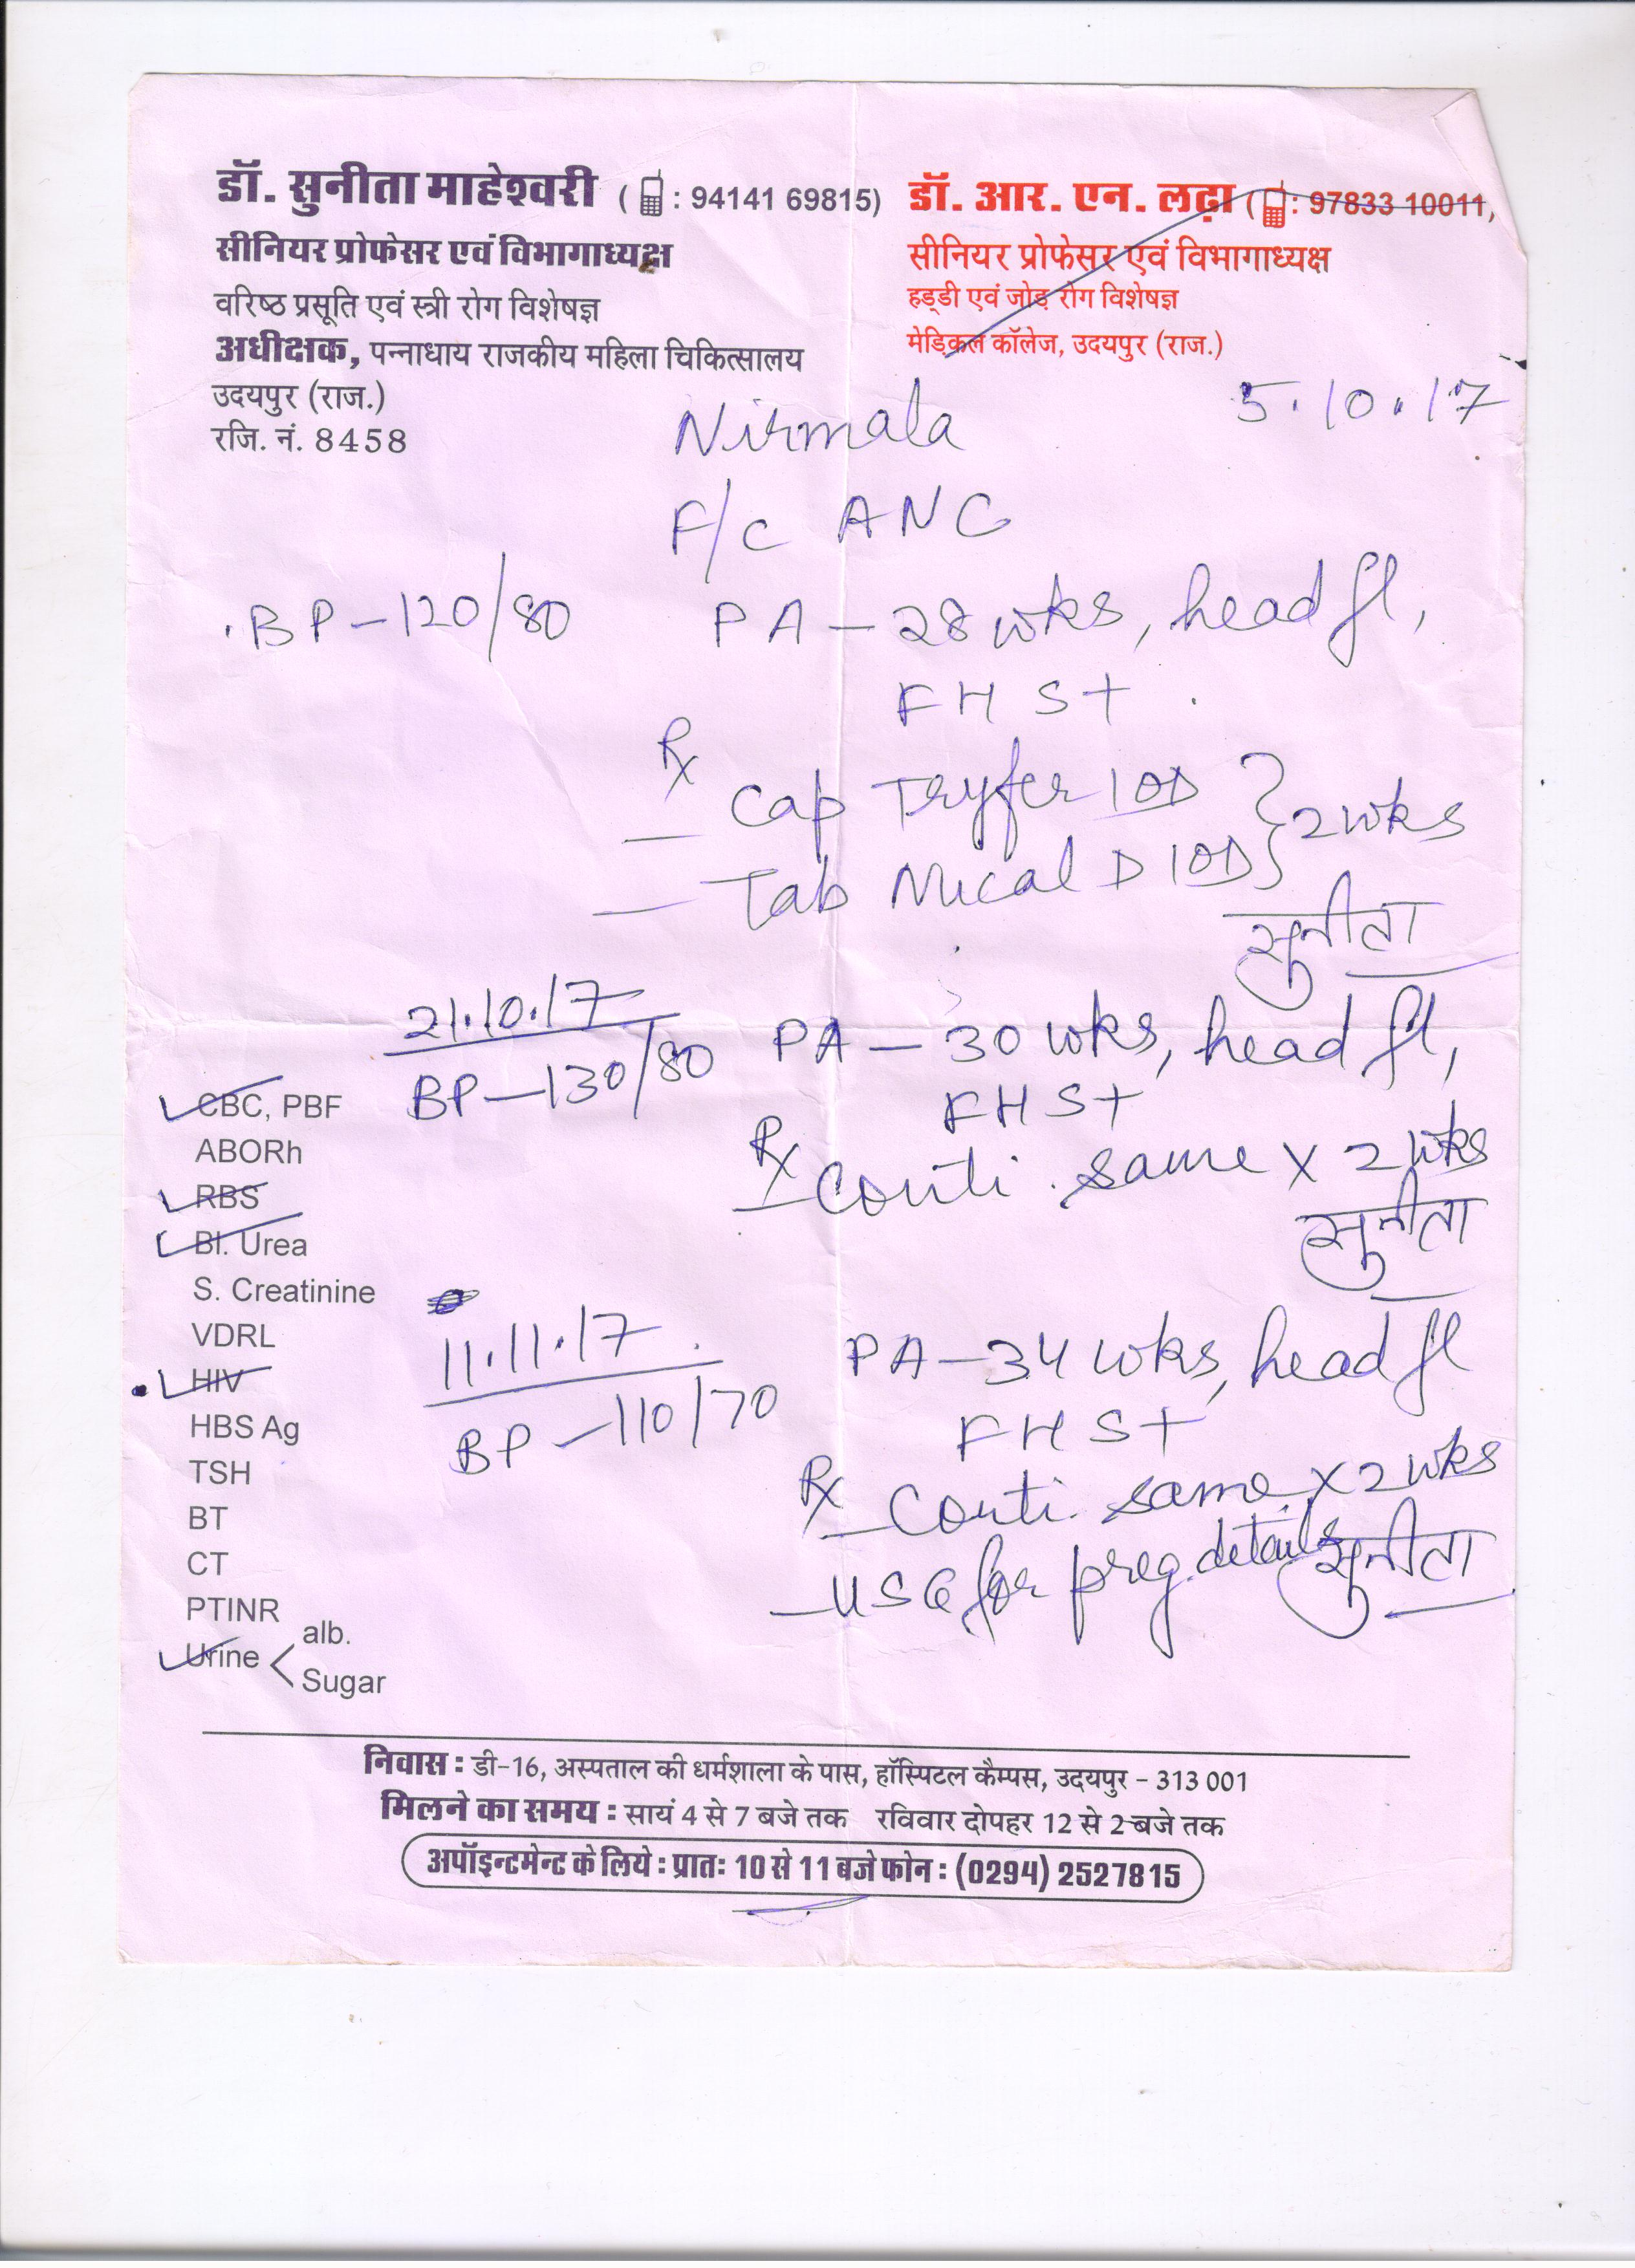 डॉ. सुनीता माहेश्वरी ( : 94141 69815)
सीनियर प्रोफेसर एवं विभागाध्यक्ष
वरिष्ठ प्रसूति एवं स्त्री रोग विशेषज्ञ
अधीक्षक, पन्नाधाय राजकीय महिला चिकित्सालय
उदयपुर (राज.)
रजि. नं. 8458
डॉ. आर. एन. लढ़ा ( : 97833 10011,
सीनियर प्रोफेसर एवं विभागाध्यक्ष
हड्डी एवं जोड़ रोग विशेषज्ञ
मेडिकल कॉलेज, उदयपुर (राज.)
5.10.17
Nirmala
F/C ANC
BP-120/80
PA-28 wks, head fl,
FHS+
Rx
Cap Tryfer 1 OD } 2 wks
Tab Nical D 1 OD
सुनीता
21.10.17
BP-130/80
PA-30 wks, head fl,
FHS+
Rx
Conti. same x 2 wks
सुनीता
11.11.17
BP-110/70
PA-34 wks, head fl
FHS+
Rx Conti. same x 2 wks
USG for preg. details
सुनीता
CBC, PBF
ABORh
RBS
Bl. Urea
S. Creatinine
VDRL
HIV
HBS Ag
TSH
BT
CT
PTINR
Urine < alb.
Sugar
निवास : डी-16, अस्पताल की धर्मशाला के पास, हॉस्पिटल कैम्पस, उदयपुर - 313 001
मिलने का समय : सायं 4 से 7 बजे तक रविवार दोपहर 12 से 2 बजे तक
अपॉइन्टमेन्ट के लिये : प्रातः 10 से 11 बजे फोन : (0294) 2527815